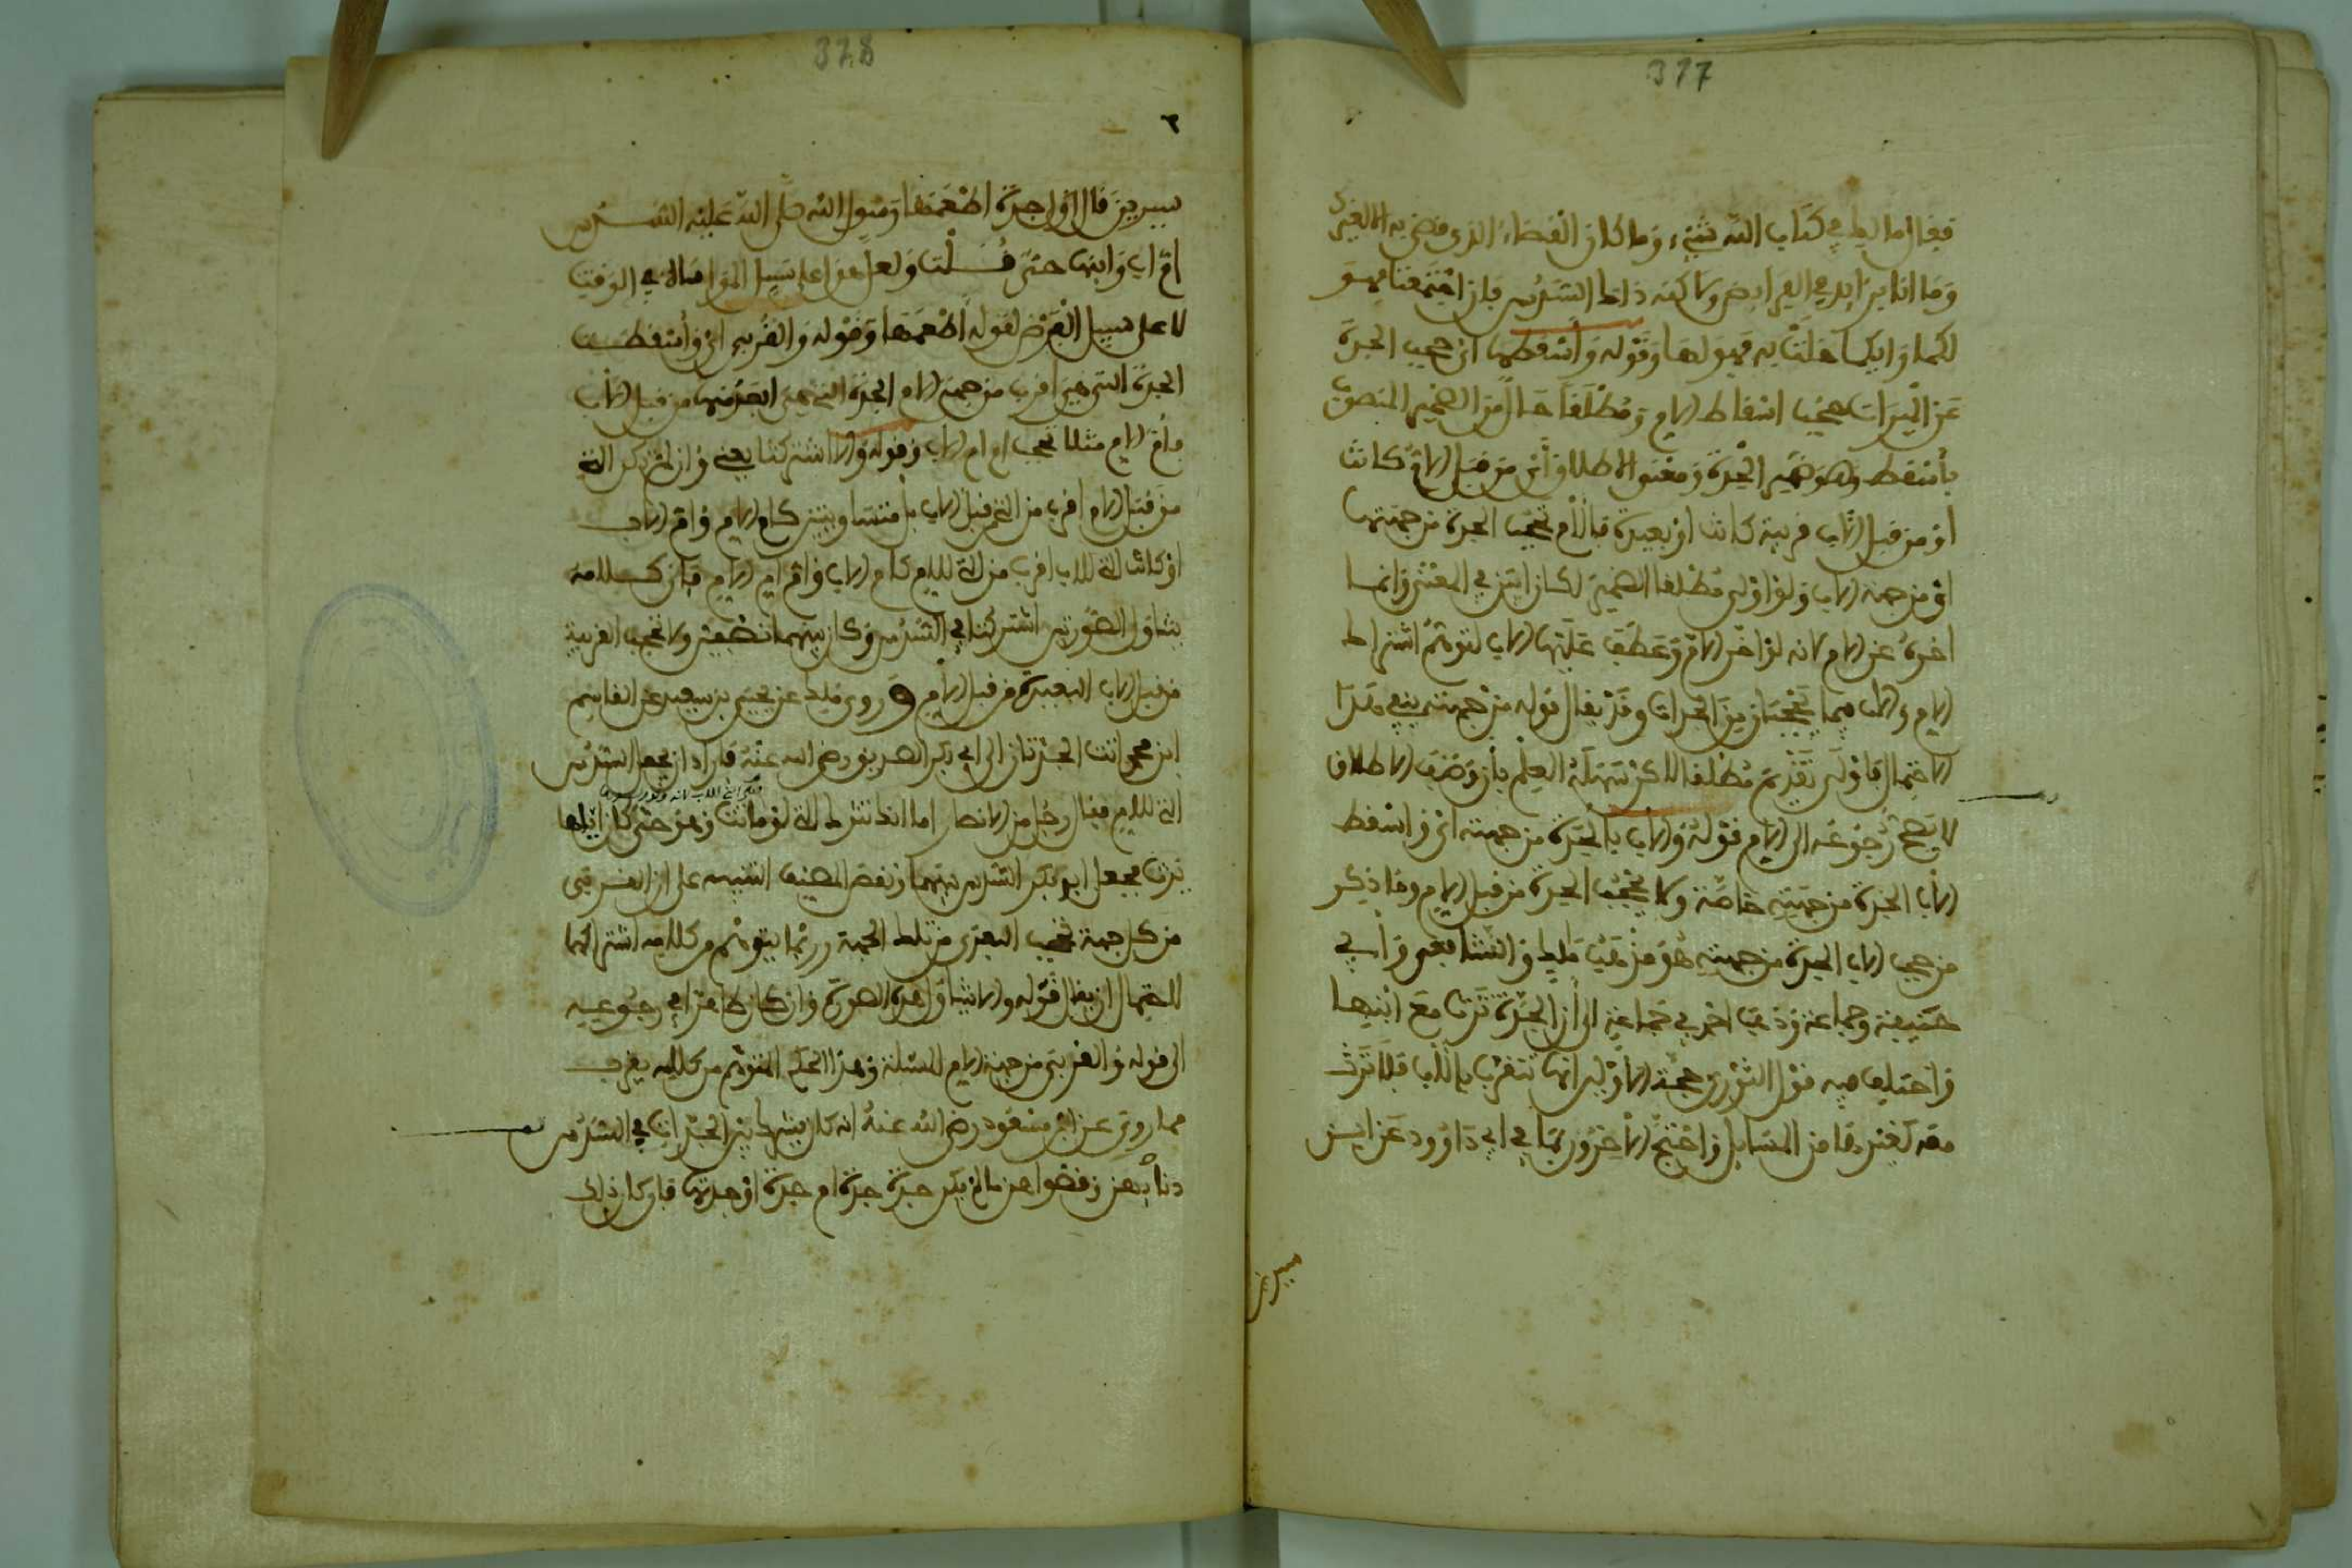 377
فقال ما لك في كتاب الله شيء وما كان القضاء الذي قضي به الا لغيرك
وما انا بزايد في الفرايض ولاكنه ذلك السدس فان اجتمعتما فهو
لكما وايكما خلت به فهو لها وقوله واسقطها اي حجب الجدة
عن الميراث بحجب اسقاط الام ومطلقا حال من الضمير المنصوب
بأسقط وهو ضمير الجدة ومعنى الاطلاق أي من قبل الام كانت
او من قبل الاب قريبة كانت او بعيدة فالأم تحجب الجدة من جهتها
او من جهة الاب ولو اولى مطلقا الضمير لكان ابين في المعنى وانما
اخره عن الام لانه لو اخر الام وعطف عليها الاب لتوهم اشتراط
الام والاب فيما يحجبان من الجدات وقد يقال قوله من جهته ينفي هذا
الاحتمال فاولى تقديم مطلقا لاكن سهله العلم بأن وصف الاطلاق
لا يصح رجوعه الى الام قوله والاب بالجدة من جهته اي واسقط
الاب الجدة من جهته خاصة ولا يحجب الجدة من قبل الام وما ذكر
من حجب الاب الجدة من جهته هو مذهب مالك والشافعي وأبي
حنيفة وجماعة وذهب اخر في جماعة الى أن الجدة ترث مع ابنها
واختلف فيه قول الثوري حجة الاولى انها تتقرب بالأب فلا ترث
معه كغيرها من المسايل واحتج الاخرون بما في ابي داوود عن ابن
سيرين
378
٣
سيرين قال اول جدة اطعمها رسول الله صلى الله عليه السدس
ام اب وابنها حي قلت ولعل هو على سبيل المواساة في الوقت
لا على سبيل الفرض لقوله اطعمها وقوله والقربى اي وأسقطت
الجدة التي هي اقرب من جهة الام الجدة التي هي ابعد منها من قبل الاب
فأم الام مثلا تحجب ام ام الاب وقوله والا اشتركتا يعني وان لم تكن التي
من قبل الام اقرب من التي قبل الاب بأن تتساويتين كام الام وام الاب
او كانت التي للاب اقرب من التي للام كام الاب وام ام الام فان كلامه
يتناول الصورتين اشتركتا في السدس وكان بينهما نصفين ولا تحجب القريبة
من قبل الاب البعيدة من قبل الأم و روى ملك عن يحيى بن سعيد عن القاسم
ابن محمد اتت الجدتان الى ابي بكر الصديق رضي الله عنه فاراد ان يجعل السدس
التي للام فقال رجل من الانصار اما انك تترك التي لو ماتت وهو حي كان اياها
يرث فجعل ابو بكر السدس بينهما ونقص المصنف التنبيه على ان القربى
من كل جهة تحجب البعدى من تلك الجهة وربما يتوهم من كلامه اشتراكهما
لاحتمال ان يقال قوله والا يتناول هذه الصورة وان كان ظاهرا في رجوعه
الى قوله والقربى من جهة الام المسئلة وهذا الحكم المتوهم من كلامه يقرب
مما روي عن ابن مسعود رضي الله عنه انه كان يشرك بين الجدات في السدس
دنأ بهن وقصواهن ما لم يكن جدة جدة ام جدة او جدتها فان كان ذلك